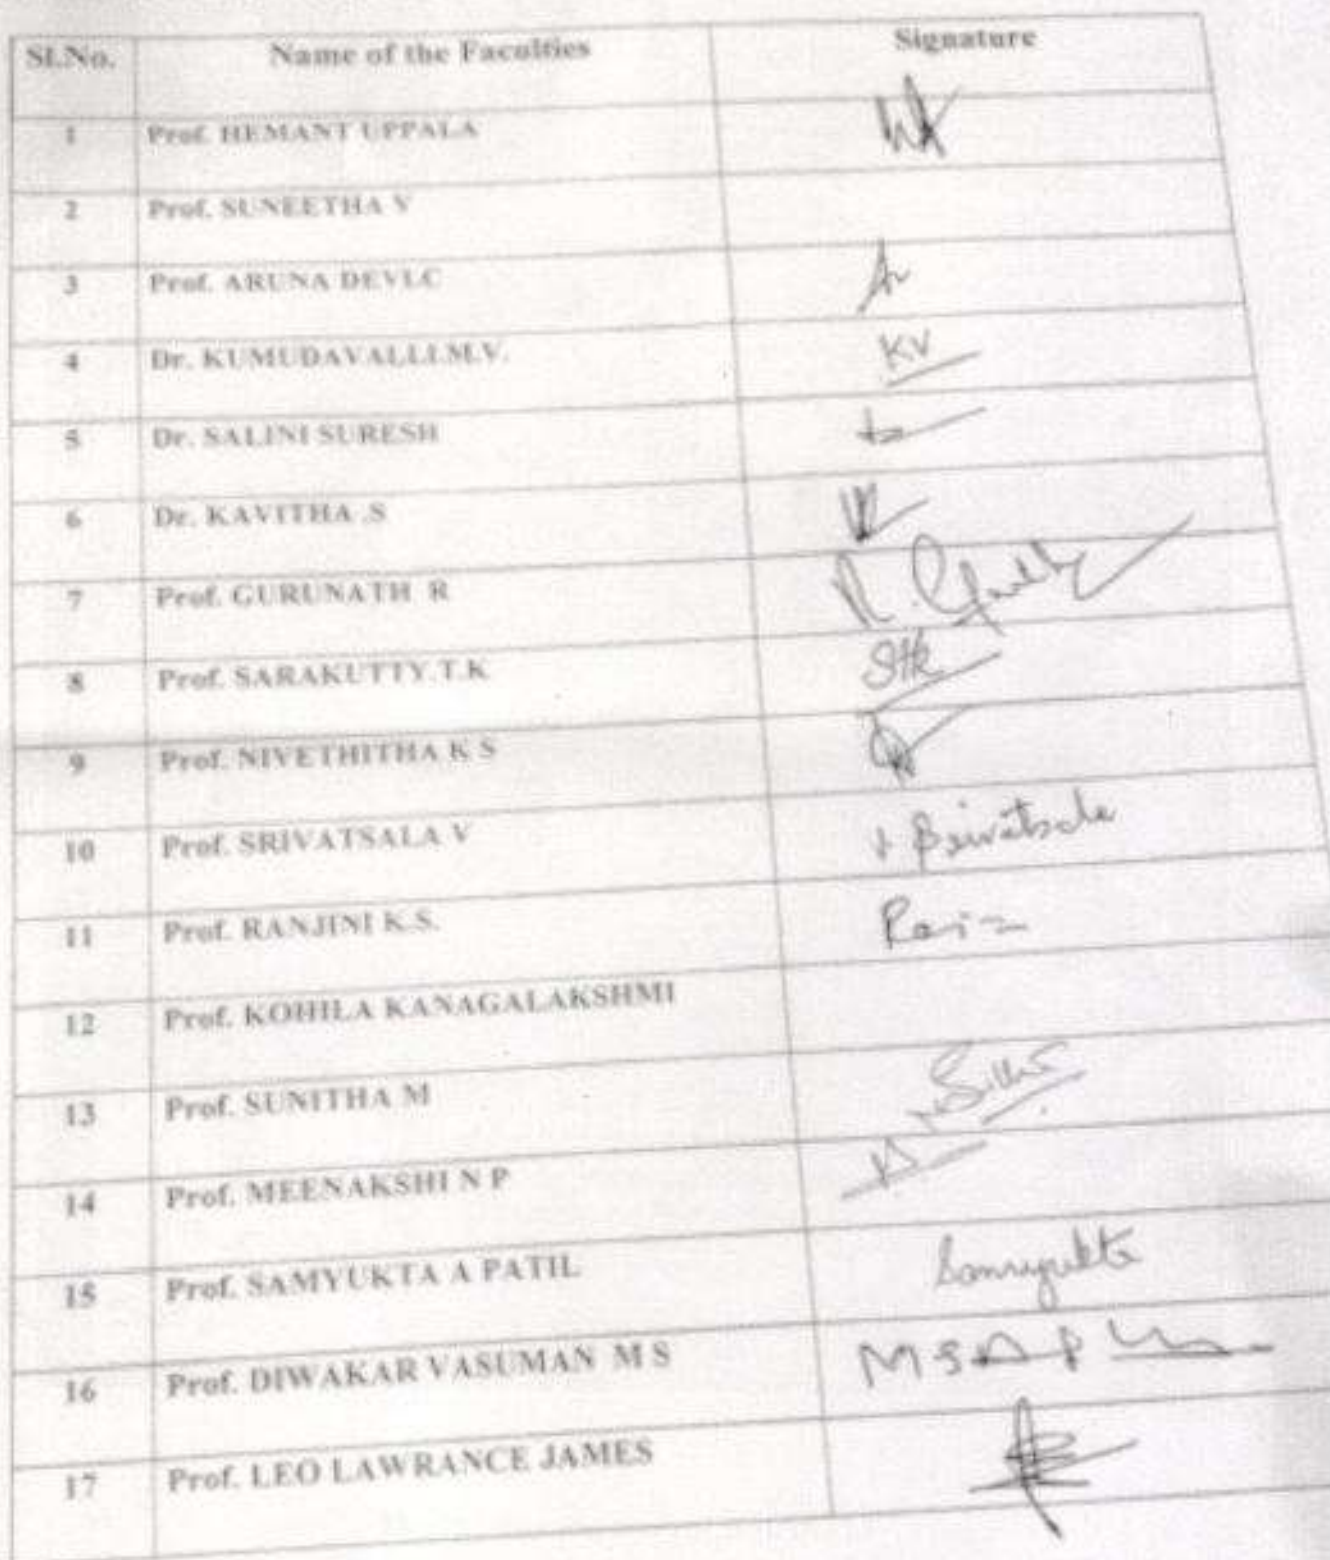 Sl.No. Name of the Faculties Signature
1 Prof. HEMANT UPPALA
2 Prof. SUNEETHA V
3 Prof. ARUNA DEVI.C
4 Dr. KUMUDAVALLI.M.V. KV
5 Dr. SALINI SURESH
6 Dr. KAVITHA .S
7 Prof. GURUNATH R R.
8 Prof. SARAKUTTY.T.K Stk
9 Prof. NIVETHITHA K S
10 Prof. SRIVATSALA V
11 Prof. RANJINI K.S.
12 Prof. KOHILA KANAGALAKSHMI
13 Prof. SUNITHA M
14 Prof. MEENAKSHI N P
15 Prof. SAMYUKTA A PATIL Samyukta
16 Prof. DIWAKAR VASUMAN M S
17 Prof. LEO LAWRANCE JAMES